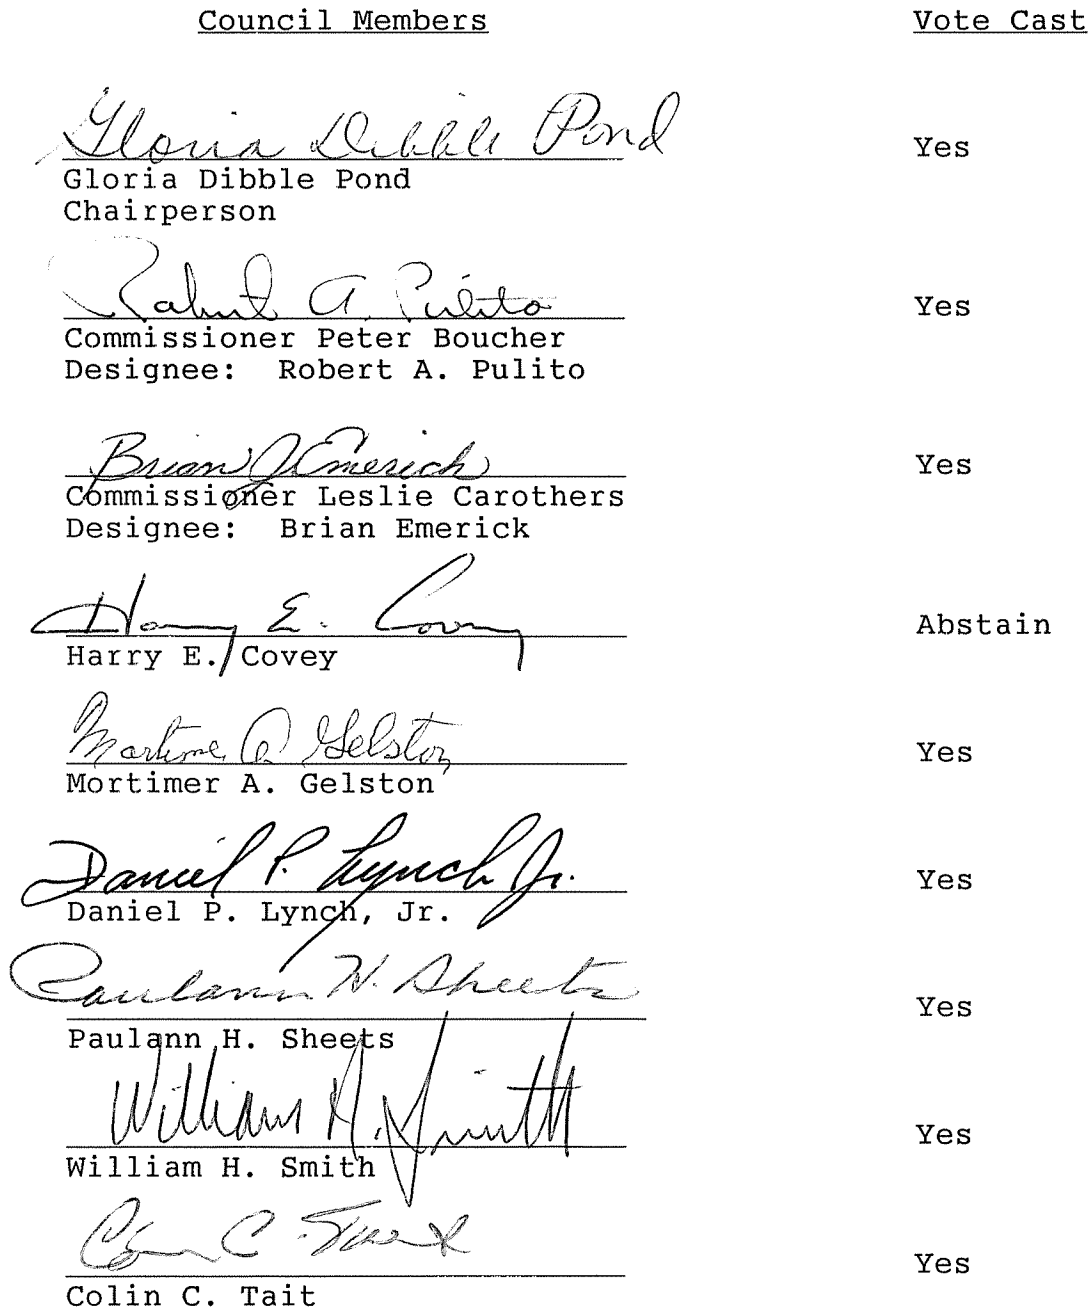 Council Members Vote Cast
Gloria Dibble Pond Yes
Gloria Dibble Pond
Chairperson
Robert A. Pulito Yes
Commissioner Peter Boucher
Designee: Robert A. Pulito
Brian J. Emerick Yes
Commissioner Leslie Carothers
Designee: Brian Emerick
Harry E. Covey Abstain
Harry E. Covey
Mortimer A. Gelston Yes
Mortimer A. Gelston
Daniel P. Lynch Jr. Yes
Daniel P. Lynch, Jr.
Paulann H. Sheets Yes
Paulann H. Sheets
William H. Smith Yes
William H. Smith
Colin C. Tait Yes
Colin C. Tait